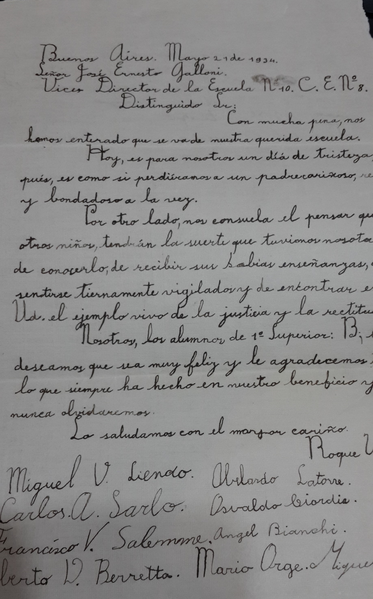 Buenos Aires. Mayo 21 de 1934.
Señor José Ernesto Galloni.
Vice Director de la Escuela N 10. C. E. Nº 8.
Distinguido Sr:
Con mucha pena, nos
hemos enterado que se va de nuestra querida escuela.
Hoy, es para nosotros un día de tristeza
pués, es como si perdiéramos a un padre cariñoso,
y bondadoso a la vez.
Por otro lado, nos consuela el pensar que
otros niños, tendrán la suerte que tuvimos
de conocerlo, de recibir sus sabias enseñanzas,
sentirse tiernamente vigilados y de encontrar
Ud. el ejemplo vivo de la justicia y la rectitud
Nosotros, los alumnos de 1º Superior: B;
deseamos que sea muy feliz y le agradecemos
lo que siempre ha hecho en nuestro beneficio y
nunca olvidaremos.
Lo saludamos con el mayor cariño.
Roque
Miguel V. Liendo. Abelardo Latorre.
Carlos A. Sarlo. Osvaldo Giordia.
Francisco V. Salemme. Angel Bianchi.
berto V. Berretta. Mario Orge. Migue